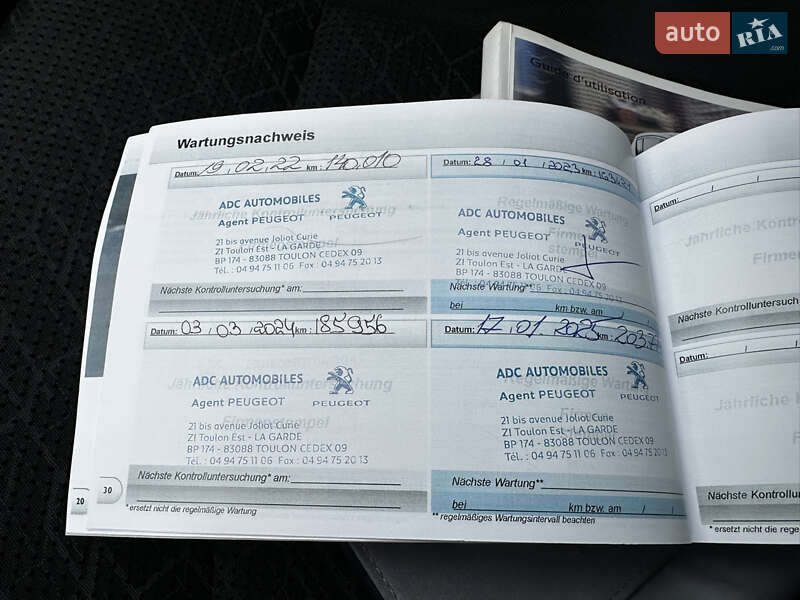 auto RIA .com
Guide d'utilisation
Wartungsnachweis
Datum: 19,02,22 km : 140.010
ADC AUTOMOBILES
Agent PEUGEOT
PEUGEOT
Jährliche Kontrolluntersuchung
21 bis avenue Joliot Curie
ZI Toulon Est - LA GARDE
BP 174 - 83088 TOULON CEDEX 09
Tél. : 04 94 75 11 06 Fax : 04 94 75 20 13
Nächste Kontrolluntersuchung* am:
Datum: 28 , 01 , 2023 km :
ADC AUTOMOBILES
Agent PEUGEOT
PEUGEOT
Regelmäßige Wartung
Firmenstempel
21 bis avenue Joliot Curie
ZI Toulon Est - LA GARDE
BP 174 - 83088 TOULON CEDEX 09
Tél. : 04 94 75 11 06 Fax : 04 94 75 20 13
Nächste Wartung**
bei km bzw. am / /
Datum: 03 , 03 , 2024 km : 185956
ADC AUTOMOBILES
Agent PEUGEOT
PEUGEOT
Jährliche Kontrolluntersuchung
Firmenstempel
21 bis avenue Joliot Curie
ZI Toulon Est - LA GARDE
BP 174 - 83088 TOULON CEDEX 09
Tél. : 04 94 75 11 06 Fax : 04 94 75 20 13
Nächste Kontrolluntersuchung* am:
Datum: 17,01,2025 km : 203.7
ADC AUTOMOBILES
Agent PEUGEOT
PEUGEOT
Regelmäßige War
21 bis avenue Joliot Curie
ZI Toulon Est - LA GARDE
BP 174 - 83088 TOULON CEDEX 09
Tél. : 04 94 75 11 06 Fax : 04 94 75 20 13
Nächste Wartung**
bei km bzw. am / /
* ersetzt nicht die regelmäßige Wartung
** regelmäßiges Wartungsintervall beachten
20
30
Datum: / /
Jährliche Kontro
Firme
Nächste Kontrolluntersuch
Datum: / /
Jährliche Kont
Firm
Nächste Kontrollun
* ersetzt nicht die rege